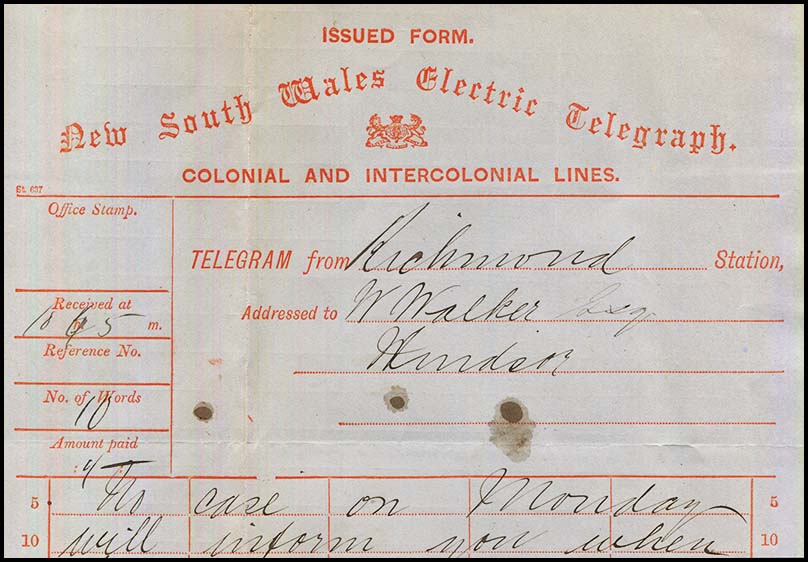 ISSUED FORM.
New South Wales Electric Telegraph.
COLONIAL AND INTERCOLONIAL LINES.
St. 637
Office Stamp.
TELEGRAM from Richmond Station,
Received at
10 h 65 m.
Addressed to W Walker Esq
Reference No.
Windsor
No. of Words
10
Amount paid
5 No case on Monday 5
10 will inform you when 10